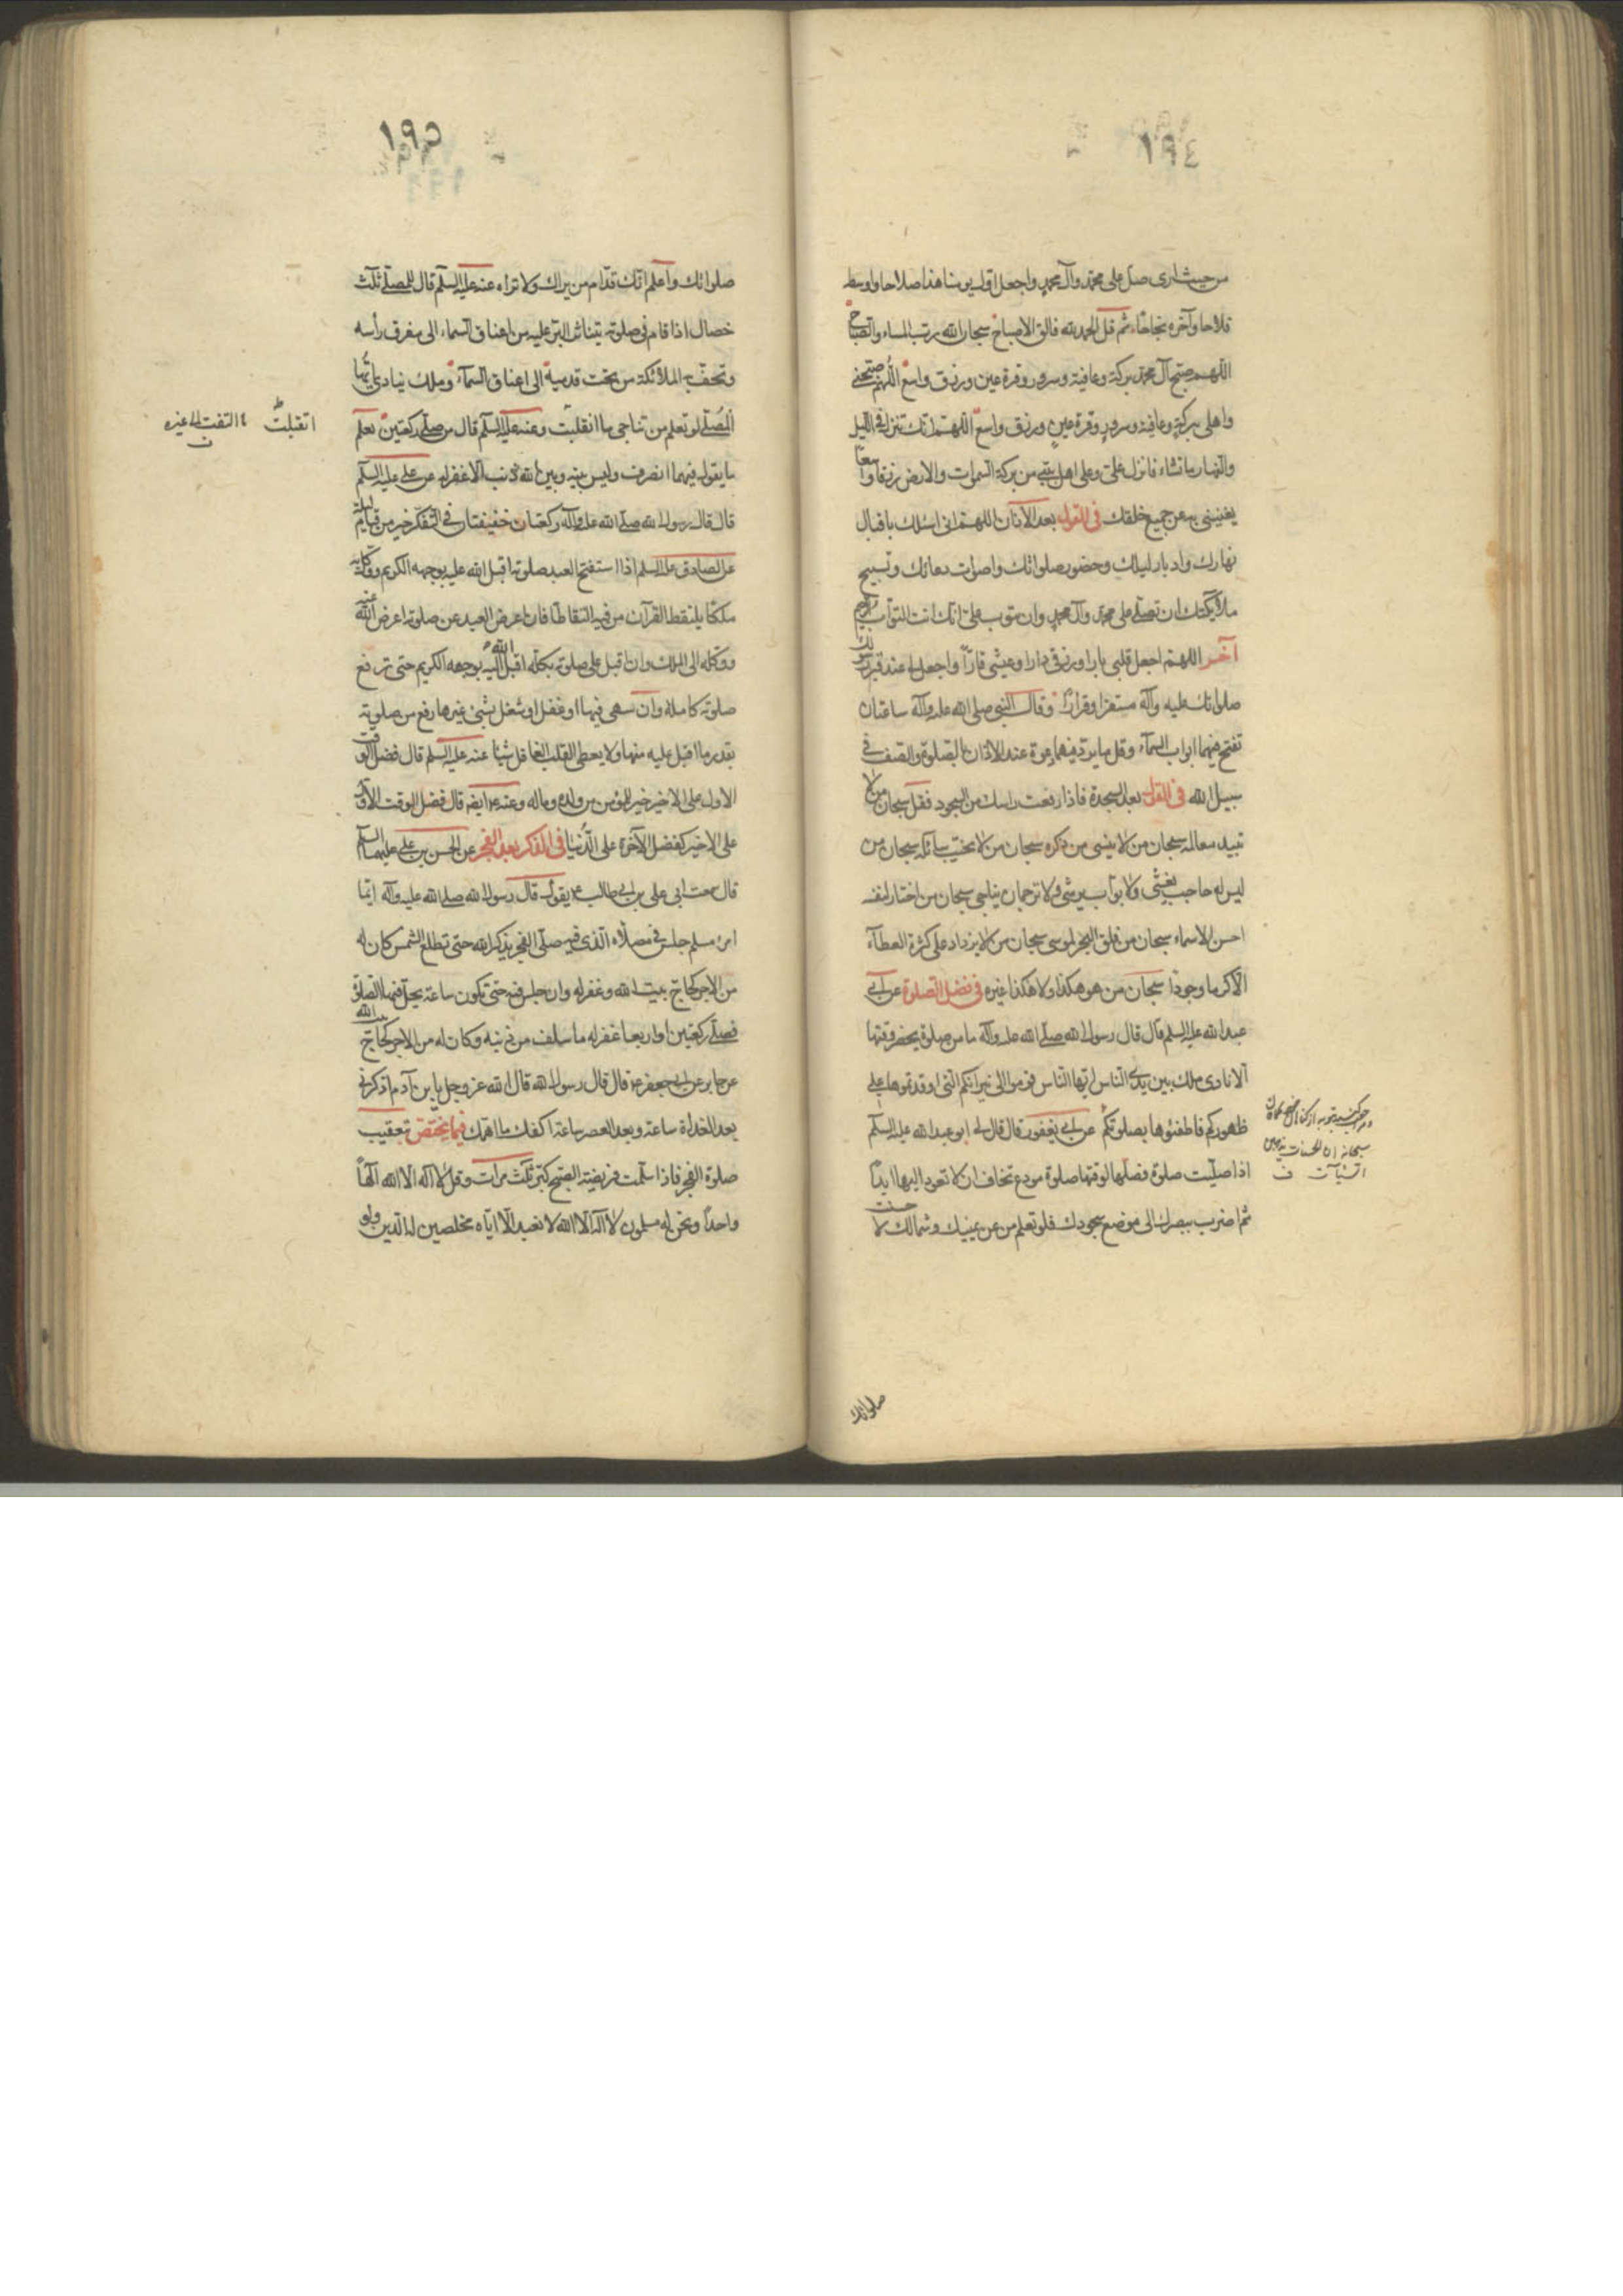 ١٩٤
من حيث ارى صل على محمد وآل محمد واجعل اول يومنا هذا صلاحا واوسطه
فلاحا وآخره نجاحا ثم قل الحمد لله فالق الاصباح سبحان الله رب المساء والصباح
اللهم صبح آل محمد ببركة وعافية وسرور وقرة عين ورزق واسع اللهم صبحني
واهلى ببركة وعافية وسرور وقرة عين ورزق واسع اللهم انك تنزل فى الليل
والنهار ما تشاء فانزل على وعلى اهل بيتى من بركة السموات والارض رزقا واسعا
يغنينى به عن جميع خلقك فى القول بعد الآذان اللهم انى اسئلك باقبال
نهارك وادبار ليلك وحضور صلواتك واصوات دعائك وتسبيح
ملائكتك ان تصلى على محمد وآل محمد وان تتوب على انك انت التواب الرحيم
آخر اللهم اجعل قلبى بارا ورزقى دارا وعيشى قارا واجعل لى عند قبر رسولك
صلواتك عليه وآله مستقرا وقرارا وقال النبى صلى الله عليه وآله ساعتان
تفتح فيهما ابواب السماء وقل ما يرد فيهما دعوة عند الاذان بالصلوة والصف فى
سبيل الله فى القول بعد السجدة فاذا رفعت راسك من السجود فقل سبحان من لا
تبيد معالمه سبحان من لا ينسى من ذكره سبحان من لا يخيب سائله سبحان من
ليس له حاجب يغشى ولا بواب يرشى ولا ترجمان يناجى سبحان من اختار لنفسه
احسن الاسماء سبحان من فلق البحر لموسى سبحان من لا يزداد على كثرة العطاء
الا كرما وجودا سبحان من هو هكذا ولا هكذا غيره فى فضل الصلوة عن ابى
عبد الله عليه السلم قال قال رسول الله صلى الله عليه وآله ما من صلوة يحضر وقتها
الا نادى ملك بين يدى الناس ايها الناس قوموا الى نيرانكم التى اوقدتموها على
ظهوركم فاطفئوها بصلوتكم عن ابى يعفور قال قال لى ابو عبد الله عليه السلم
اذا صليت صلوة فصلها لوقتها صلوة مودع تخاف ان لا تعود اليها ابدا
ثم اضرب ببصرك الى موضع سجودك فلو تعلم من عن يمينك وشمالك لاحسنت
سبحانه ان الحسنات يذهبن
السيئات
صلواتك
١٩٥
صلواتك واعلم انك قدام من يراك ولا تراه عنه عليه السلم قال للمصلى ثلث
خصال اذا قام فى صلوته يتناثر البر عليه من اعناق السماء الى مفرق رأسه
وتحف به الملائكة من تحت قدميه الى اعناق السماء وملك ينادى ايها
المصلى لو تعلم من تناجى ما انقلبت وعنه عليه السلم قال من صلى ركعتين تعلم
انقلبت
التفت الى غيره
ما يقول فيهما انصرف وليس بينه وبين الله ذنب الا غفر له عن على عليه السلم
قال قال رسول الله صلى الله عليه وآله ركعتان خفيفتان فى التفكر خير من قيام ليلة
عن الصادق عليه السلم اذا استفتح العبد صلوته اقبل الله عليه بوجهه الكريم ووكل به
ملكا يلتقط القرآن من فيه التقاطا فان اعرض العبد عن صلوته اعرض الله عنه
ووكله الى الملك وان اقبل على صلوته بكله اقبل الله اليه بوجهه الكريم حتى ترفع
صلوته كاملة وان سهى فيها او غفل او شغل بشئ غيرها رفع من صلوته
بقدر ما اقبل عليه منها ولا يعطى القلب الغافل شيئا عنه عليه السلم قال فضل الوقت
الاول على الاخير خير للمؤمن من ولده وماله وعنه ايضا قال فضل الوقت الاول
على الاخير كفضل الآخرة على الدنيا فى الذكر بعد الفجر عن الحسن بن على عليهما السلم
قال سمعت ابى على بن ابى طالب يقول قال رسول الله صلى الله عليه وآله ايما
امرئ مسلم جلس فى مصلاه الذى فيه صلى الفجر يذكر الله حتى تطلع الشمس كان له
من الاجر كحاج بيت الله وغفر له وان جلس فيه حتى تكون ساعة يحل فيها الصلوة
فصلى ركعتين او اربعا غفر له ما سلف من ذنبه وكان له من الاجر كحاج بيت الله
عن جابر عن ابى جعفر قال قال رسول الله قال الله عز وجل يا بن آدم اذكرنى
بعد الغداة ساعة وبعد العصر ساعة اكفك ما اهمك فيما يختص تعقيب
صلوة الفجر فاذا سلمت فريضة الصبح كبر ثلث مرات وقل لا اله الا الله الها
واحدا ونحن له مسلمون لا اله الا الله لا نعبد الا اياه مخلصين له الدين ولو